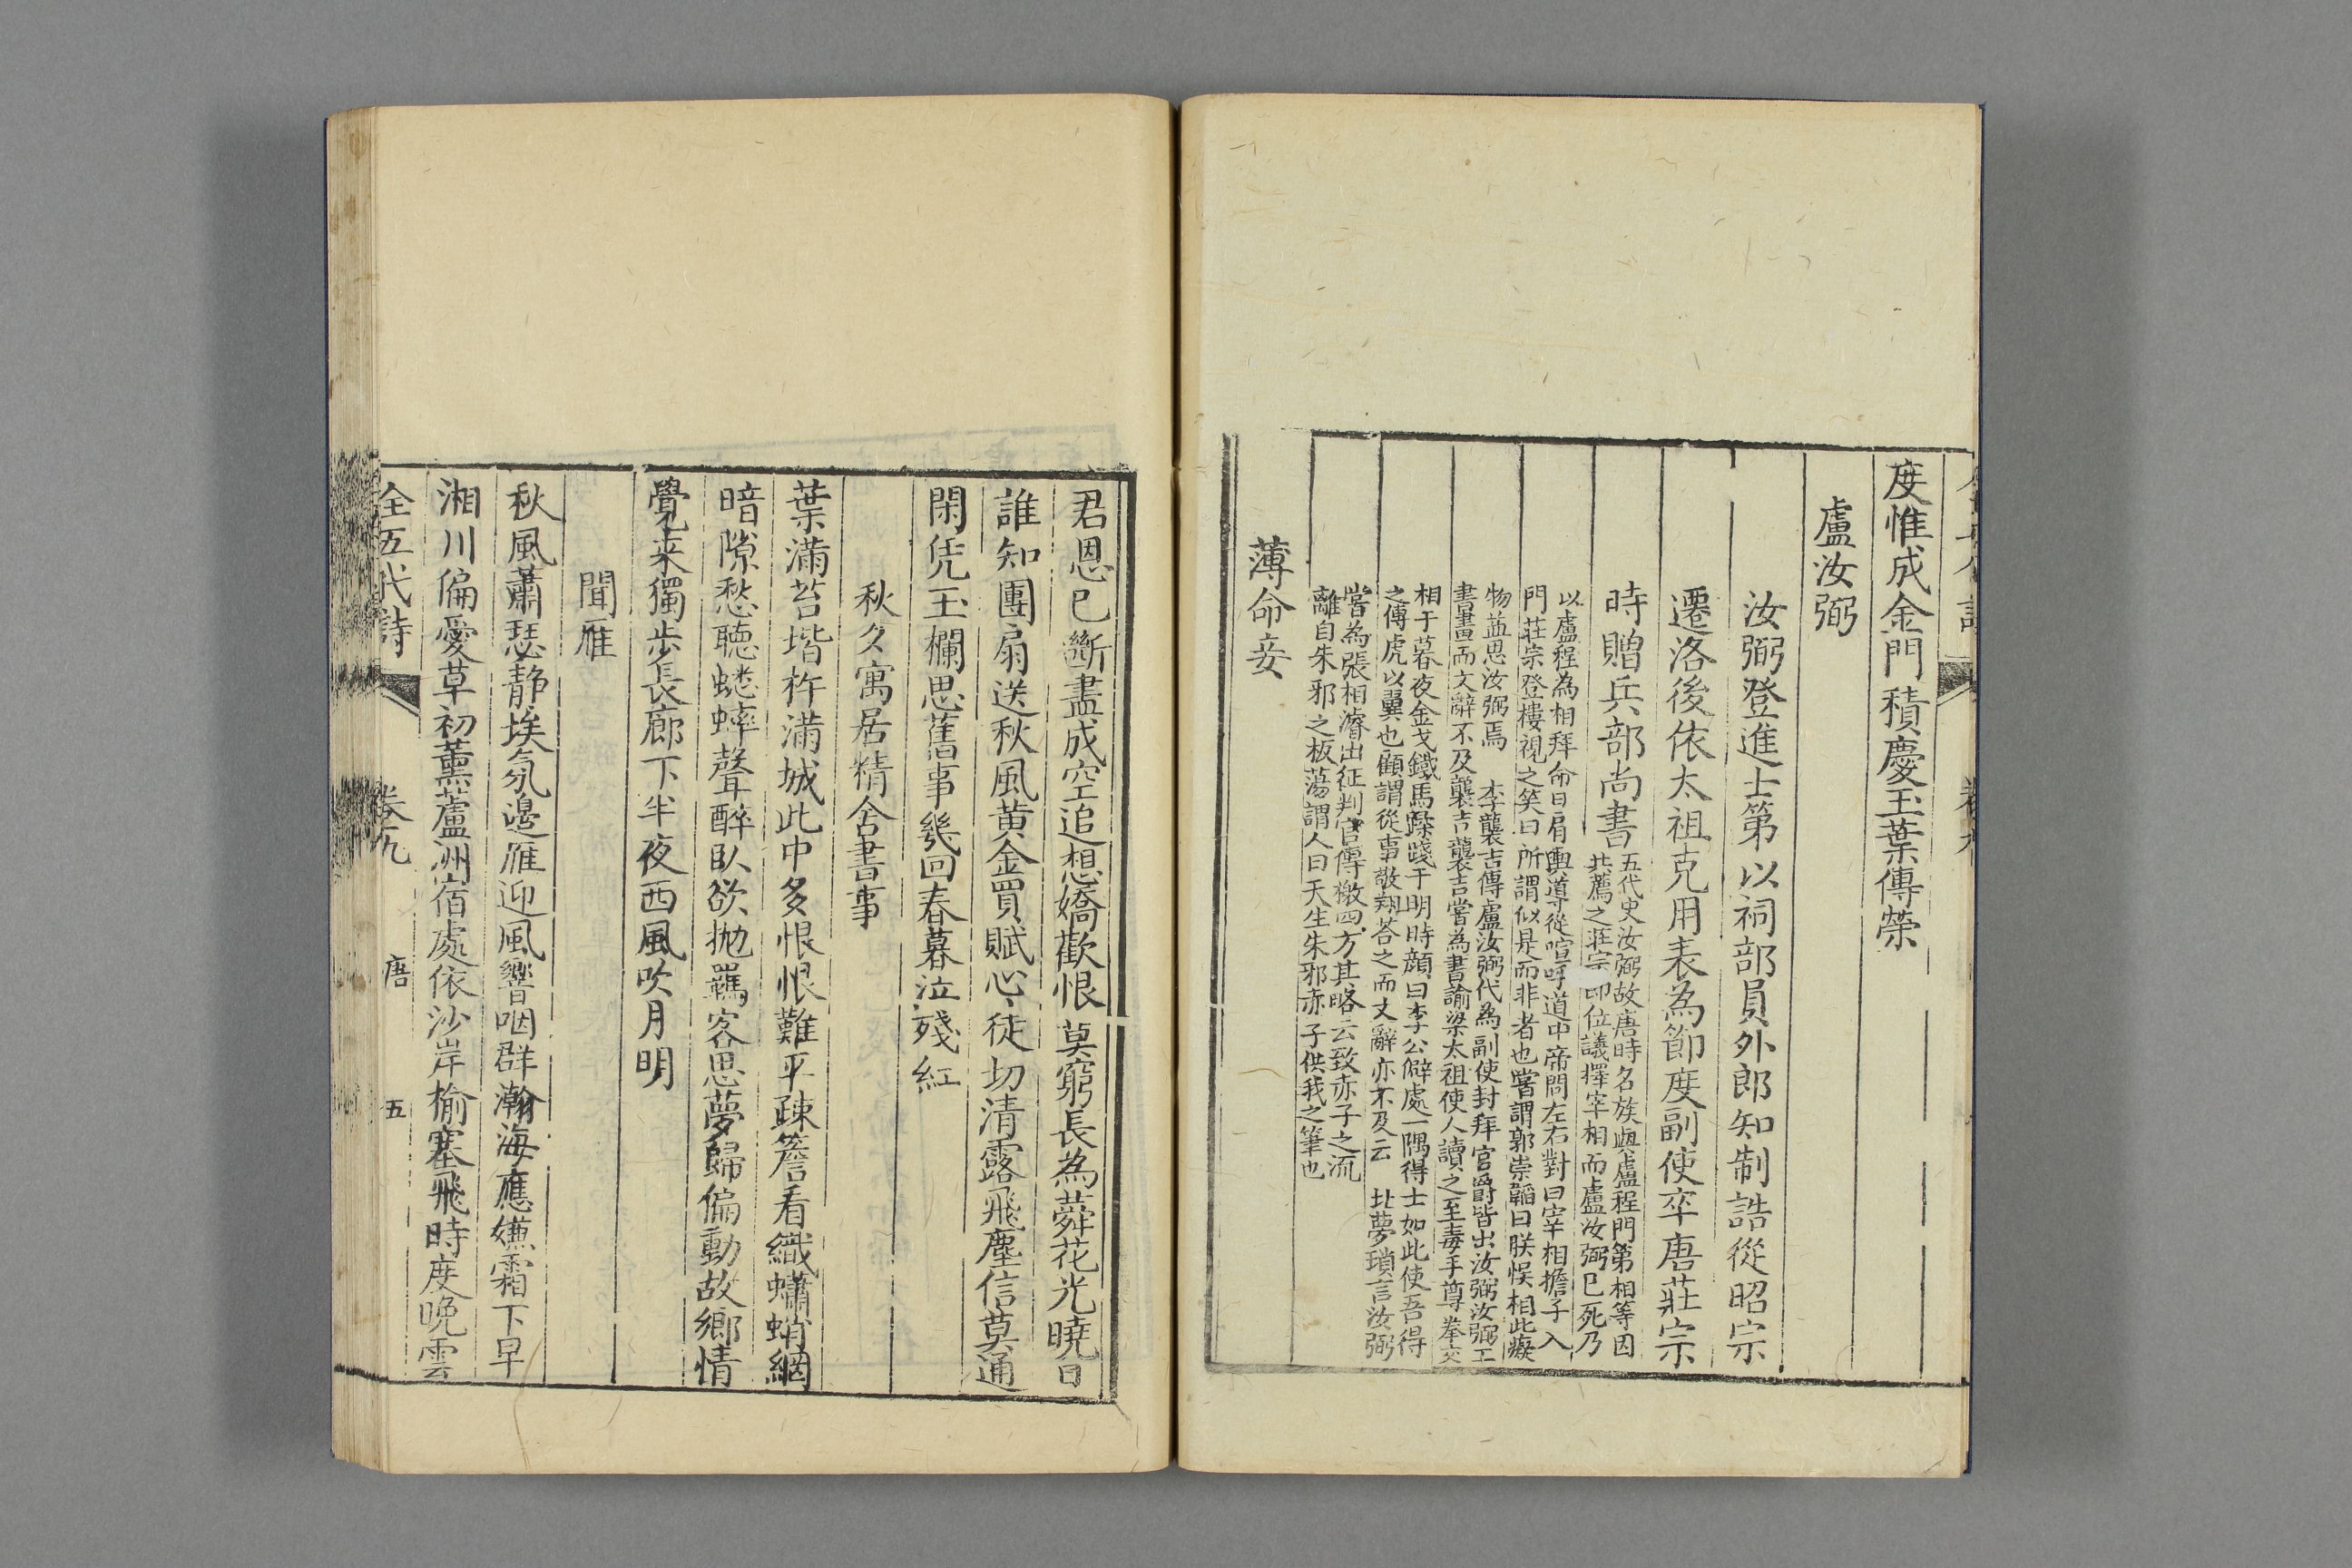 度惟成金門積慶玉葉傳榮
盧汝弼
汝弼登進士第以祠部員外郎知制誥從昭宗
遷洛後依太祖克用表為節度副使卒唐莊宗
時贈兵部尚書
五代史汝弼故唐時名族與盧程門第相等因
共薦之莊宗即位議擇宰相而盧汝弼已死乃
以盧程為相拜命日肩輿導從喧呼道中帝問左右對曰宰相擔子入
門莊宗登樓視之笑曰所謂似是而非者也嘗謂郭崇韜曰朕悞相此癡
物益思汝弼焉 李襲吉傳盧汝弼代為副使封拜官爵皆出汝弼汝弼工
書畫而文辭不及襲吉襲吉嘗為書諭梁太祖使人讀之至毒手尊拳交
相于暮夜金戈鐵馬蹂踐于明時顔曰李公僻處一隅得士如此使吾得
之傳虎以翼也顧謂從事敬翔荅之而文辭亦不及云 北夢瑣言汝弼
嘗為張相濬出征判官傳檄四方其略云致赤子之流
離自朱邪之板蕩謂人曰天生朱邪赤子供我之筆也
薄命妾
君恩已斷盡成空追想嬌歡恨莫窮長為蕣花光曉日
誰知團扇送秋風黄金買賦心徒切清露飛塵信莫通
閑凭玉欄思舊事幾回春暮泣殘紅
秋夕寓居精舍書事
葉滿苔堦杵滿城此中多恨恨難平疎簷看織蠨蛸網
暗隙愁聽蟋蟀聲醉臥欲抛羈客思夢歸偏動故鄉情
覺来獨步長廊下半夜西風吹月明
聞雁
秋風蕭瑟静埃氛邊雁迎風響咽群瀚海應嫌霜下早
湘川偏愛草初薰蘆洲宿處依沙岸榆塞飛時度晩雲
全五代詩 卷九 唐 五